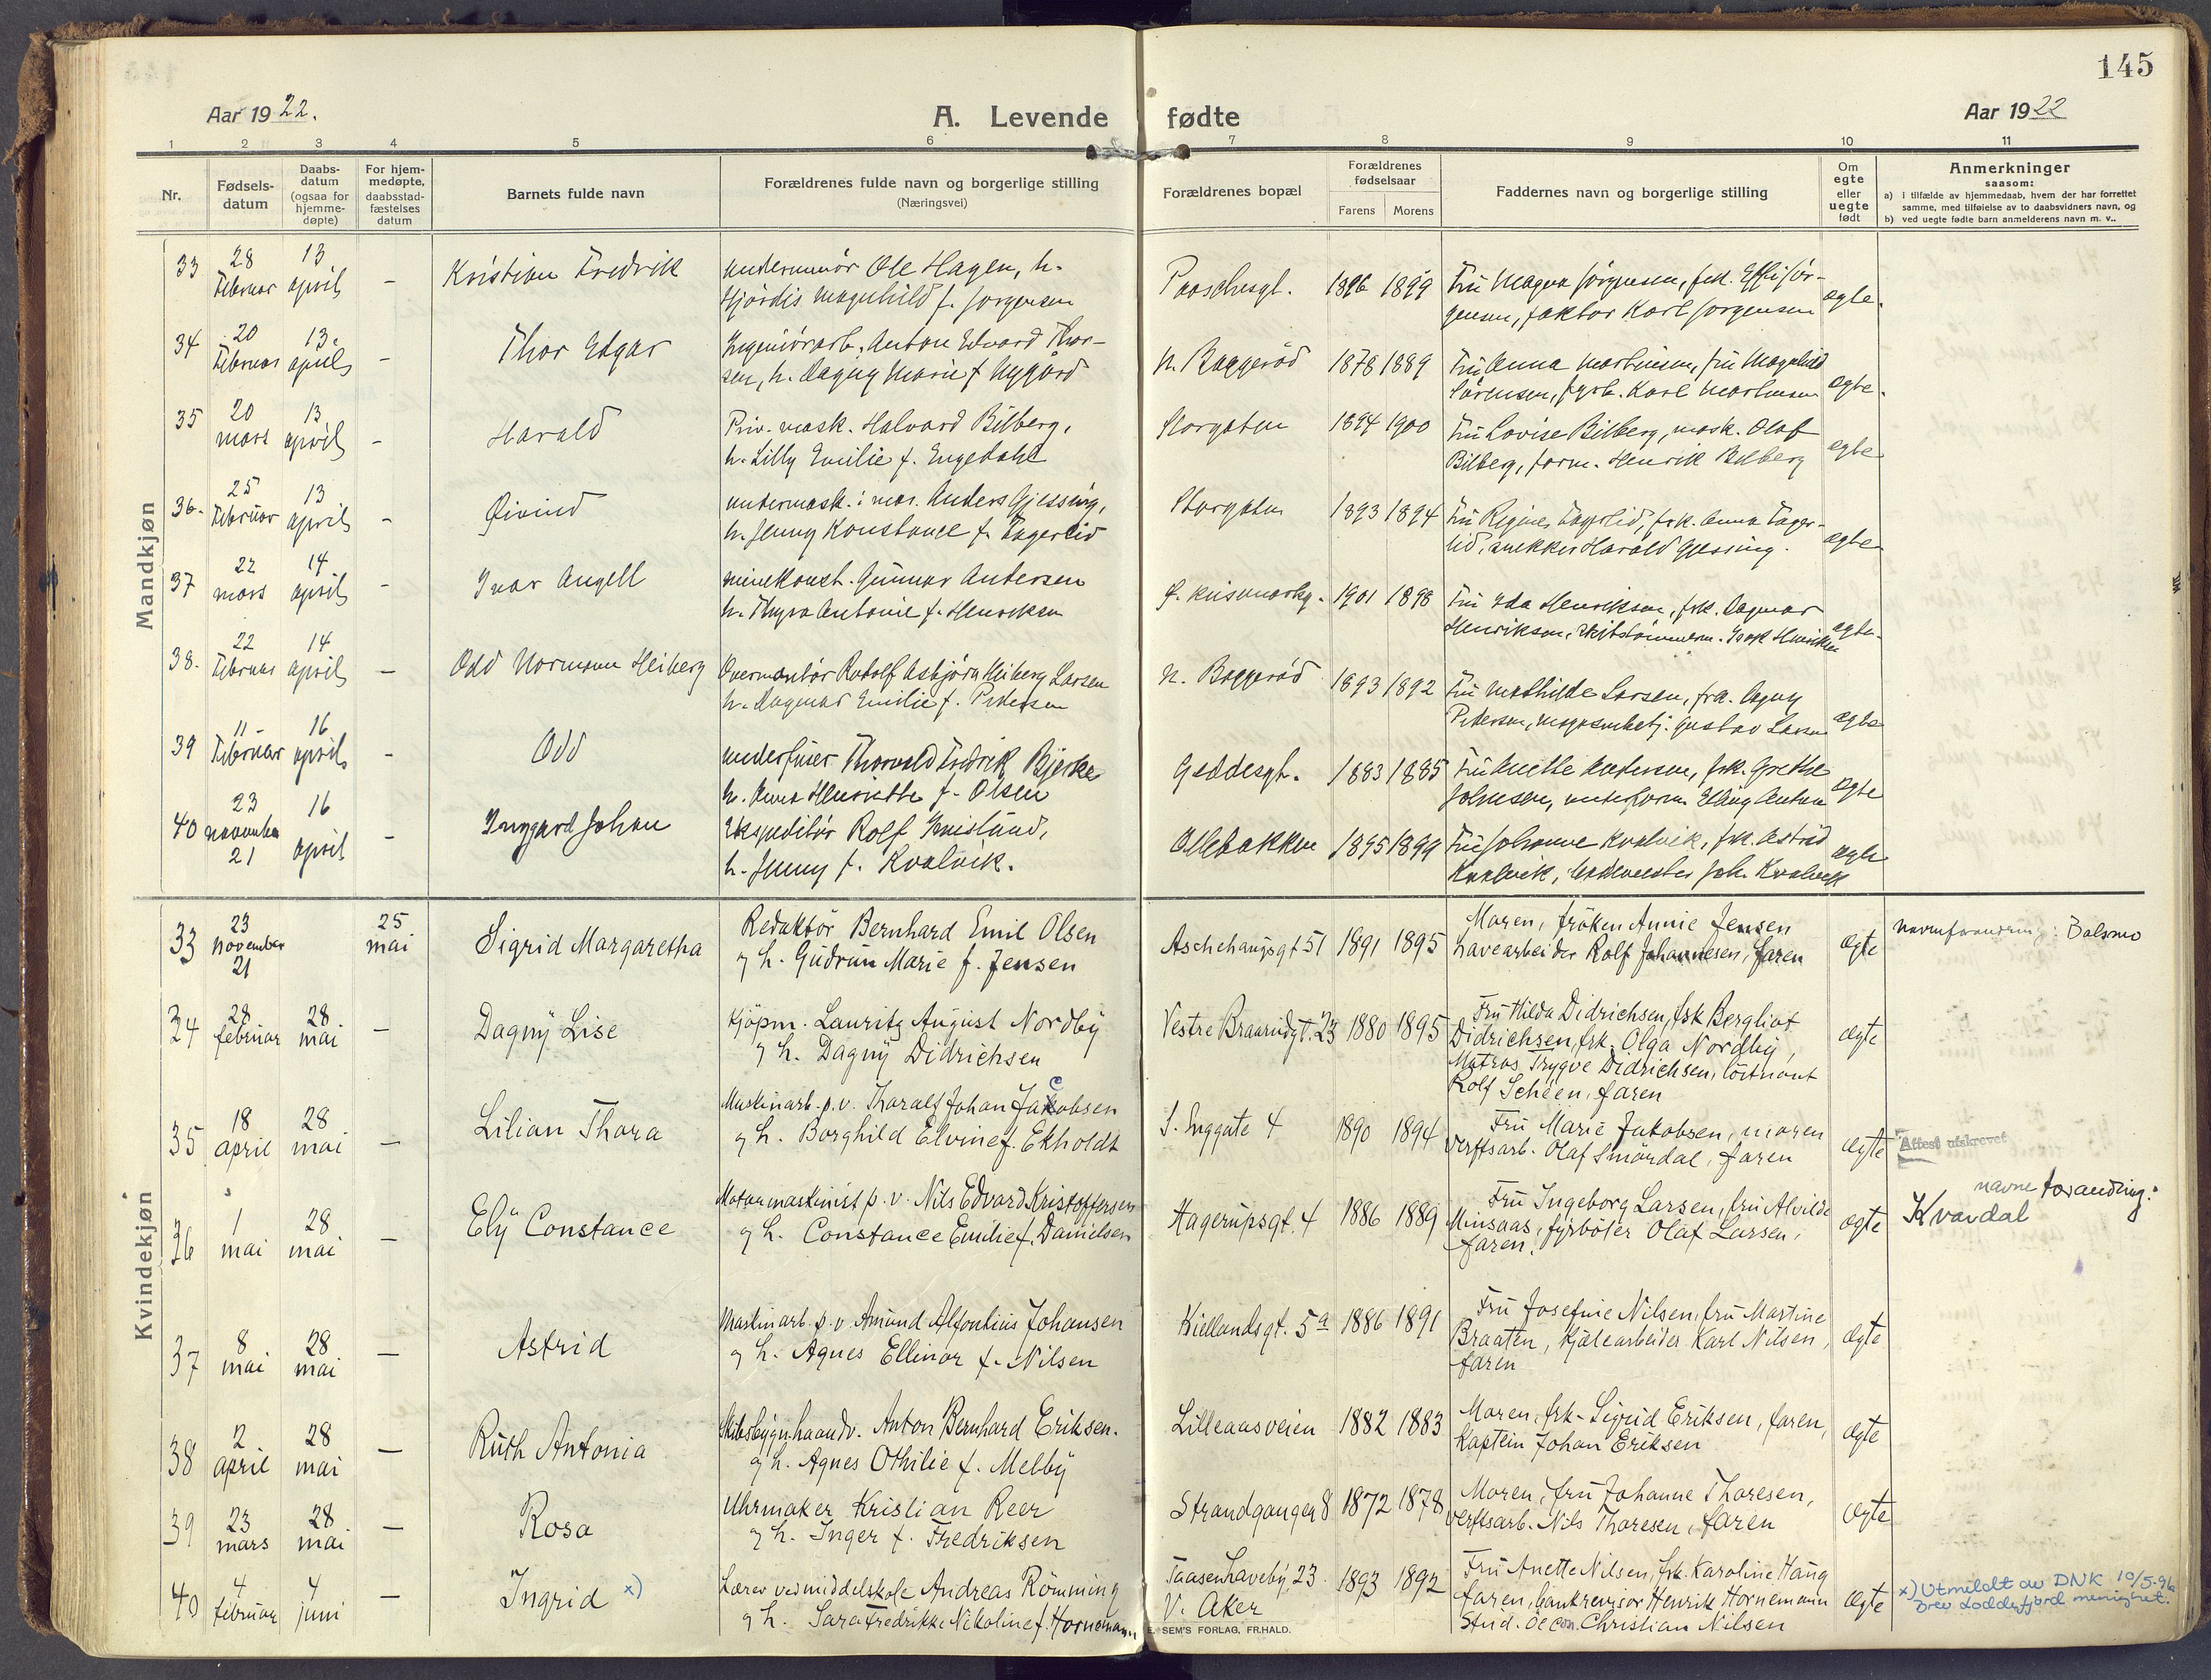 145
Aar 1922.
A. Levende fødte
Aar 1922
1 2 3 4 5 6 7 8 9 10 11
Nr.
Fødsels-
datum
Daabs-
datum
(ogsaa for
hjemme-
døpte)
For hjem-
medøpte,
daabsstad-
fæstelses
datum
Barnets fulde navn
Forældrenes fulde navn og borgerlige stilling
(Næringsvei)
Forældrenes bopæl
Forældrenes
fødselsaar
Farens Morens
Faddernes navn og borgerlige stilling
Om
egte
eller
uegte
født
Anmerkninger
saasom:
a) i tilfælde av hjemmedaab, hvem der har forrettet
samme, med tilføielse av to daabsvidners navn, og
b) ved uegte fødte barn anmelderens navn m. v..
Mandkjøn
33 28 Februar 13 april - Kristian Fredrik
Ole Hagen, h.
Hjördis Magnhild f. Jorgensen
1899 Fru Magna Jörgensen, frk.
gensen, faktor Karl Jorgensen egte.
34 20 Februar 13. april - Thor Edgar
Anton Edvard Thor-
sen, h. Dagny Marie f. Nygård
N. Baggeröd 1878 1889 Fru Anna Martinsen, fru Magnhild
Sörensen, fyrb. Karl Martinsen egte.
35 20 mars 13 april - Harald
Priv. mask. Halvard Bilberg,
h. Lilly Emilie f. Engedahl
Storgaten 1894 1900 Fru Lovise Bilberg, mask. Olaf
Bilberg, form. Henrik Bilberg egte
36. 25 Februar 13 april - Øivind
undermask. i mar. Anders Gjessing,
h. Jenny Konstance f. Fagerlid
Storgaten 1893 1894 Fru Regine Fagerlid, frk. Anna Fager-
lid, snekker Harald Gjessing. egte
37 22 mars 14 april - Ivar Angell
minekonst. Gunnar Andersen
h. Thyra Antonie f. Henriksen
1901 1898 Fru Ida Henriksen, frk. Dagmar
Henriksen, egte
38. 22 Februar 14 april - Odd Normann Heiberg
Overmontör Rudolf Asbjörn Heiberg Larsen
h. Dagmar Emilie f. Pedersen
N. Baggeröd 1893 1892 Fru Mathilde Larsen, frk. Dagny
Pedersen, Gustav Larsen egte
39 11 Februar 16 april - Odd
Thorvald Fredrik Bjerke
h. Anna Henriette f. Olsen
Geddesgt. 1883 1885 Fru Anette Andersen, frk. Grethe
Johnsen, egte
40 23 november 21 16 april - Inggard Johan
Ekspeditör Rolf
h. Jenny f. Kvalvik.
Ollebakken 1895 1899 Fru Johanne Kvalvik, frk. Astrid
Kvalvik, Joh. Kvalvik egte
Kvindekjøn
33 23 november 21 25 mai Sigrid Margaretha
Redaktör Bernhard Emil Olsen
og h. Gudrun Marie f. Jensen
Aschehaugsgt 51 1891 1895 Moren, fröken Annie Jensen
havearbeider Rolf Johannesen, faren egte
navnforandring: Dalsmo
34 28 februar 28 mai - Dagny Lise
Kjöpm. Lauritz August Nordby
og h. Dagny Didrichsen
Vestre Braarudgt. 23 1880 1895 Fru Hilda Didrichsen, frk Bergliot
Didrichsen, frk. Olga Nordby,
Matros Trygve Didrichsen, löitnant
Rolf Schéen, faren egte
35 18 april 28 mai - Lilian Thora
Maskinarb. p.v. Tharalf Johan Jacobsen
og h. Borghild Elvine f. Ekholdt
S. Enggate 4 1890 1894 Fru Marie Jakobsen, moren
verftsarb. Olaf Smördal, faren egte
Attest utskrevet
36 1 mai 28 mai - Ely Constance
Motormaskinist p.v. Nils Edvard Kristoffersen
og h. Constance Emilie f. Danielsen
Hagerupsgt. 4 1886 1889 Fru Ingeborg Larsen, fru Alvilde
Minsaas, fyrböter Olaf Larsen,
faren. egte
navneforandring:
Kvardal
37 8 mai 28 mai - Astrid
Maskinarb. p.v. Amund Alfontius Johansen
og h. Agnes Ellinor f. Nilsen
Kiellandsgt. 5a 1886 1891 Fru Josefine Nilsen, fru Martine
Braaten, kjelearbeider Karl Nilsen,
faren egte
38 2 april 28 mai - Ruth Antonia
Skibsbygn.haandv. Anton Bernhard Eriksen.
og h. Agnes Othilie f. Melby
Lilleaasveien 1882 1883 Moren, frk. Sigrid Eriksen, faren,
Kaptein Johan Eriksen egte
39 23 mars 28 mai - Rosa
Uhrmaker Kristian Reer
og h. Inger f. Fredriksen
Strandgangen 8 1872 1878 Moren, fru Johanne Thoresen,
verftsarb. Nils Thoresen, faren egte
40 4 februar 4 juni - Ingrid x)
Lærer ved middelskole Andreas Römming
og h. Sara Fredrikke Nikoline f. Hornemann
Taasen Haveby 23
V. Aker 1893 1892 Fru Anette Nilsen, frk. Karoline Haug
faren, bankrevisor Henrik Hornemann
Stud. oecon. Christian Nilsen egte
x) Utmeldt av DNK 10/5-96
brev Loddefjord menighet.
E. SEM'S FORLAG, FR.HALD.